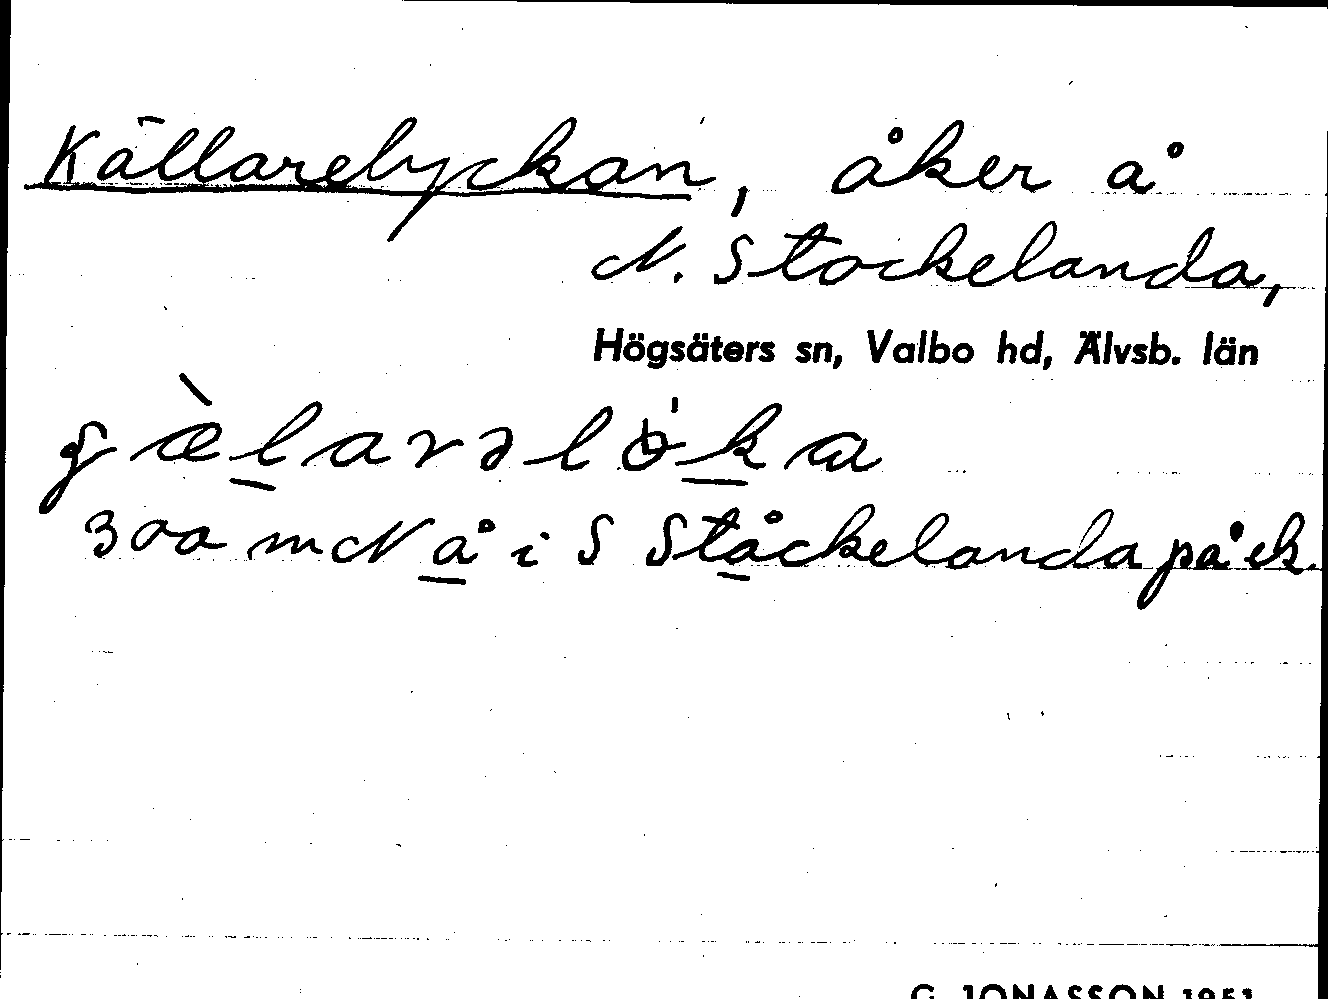 Källarelyckan, åker å
N. Stockelanda,
Högsäters sn, Valbo hd, Älvsb. län
gæ̀larəlö́ka
300 m N å i S Ståckelanda på ek.
G. JONASSON 1951